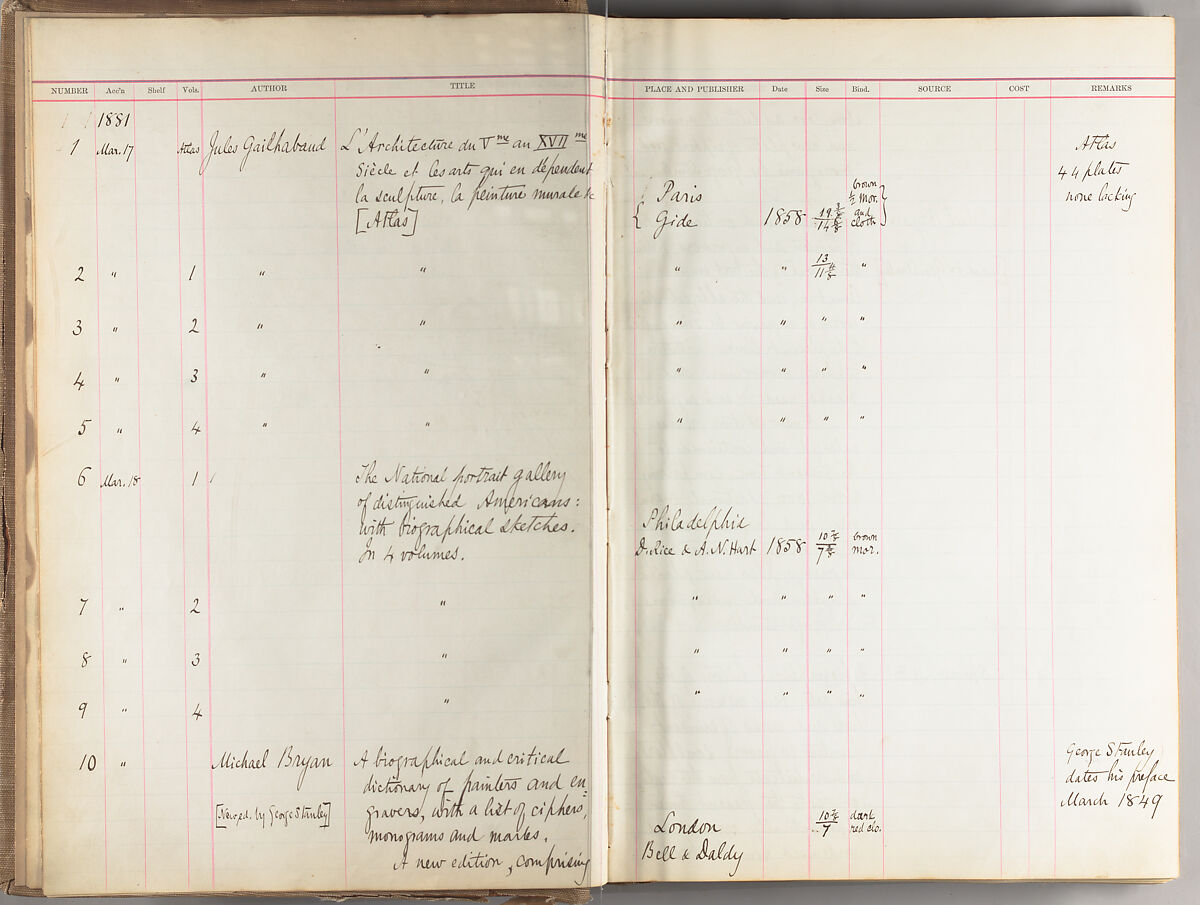 NUMBER Acc'n Shelf Vols. AUTHOR TITLE PLACE AND PUBLISHER Date Size Bind. SOURCE COST REMARKS
1881
1 Mar. 17 Atlas Jules Gailhabaud L'Architecture du Vme au XVIIme
Siècle et les arts qui en dépendent
la sculpture, la peinture murale &c
[Atlas]
Paris
Gide 1858 brown ½ mor. and cloth
Atlas
44 plates
none lacking
2 " 1 " " " " 13 "
3 " 2 " " " " " "
4 " 3 " " " " " "
5 " 4 " " " " " "
6 Mar. 18 1 The National portrait gallery
of distinguished Americans:
with biographical sketches.
In 4 volumes.
Philadelphia
D. Rice & A. N. Hart 1858 brown mor.
7 " 2 " " " " "
8 " 3 " " " " "
9 " 4 " " " " "
10 " Michael Bryan A biographical and critical
dictionary of painters and en=
[New ed. by George Stanley] gravers, with a list of ciphers,
monograms and marks.
A new edition, comprising
London
Bell & Daldy
7 dark red clo.
George Stanley
dates his preface
March 1849